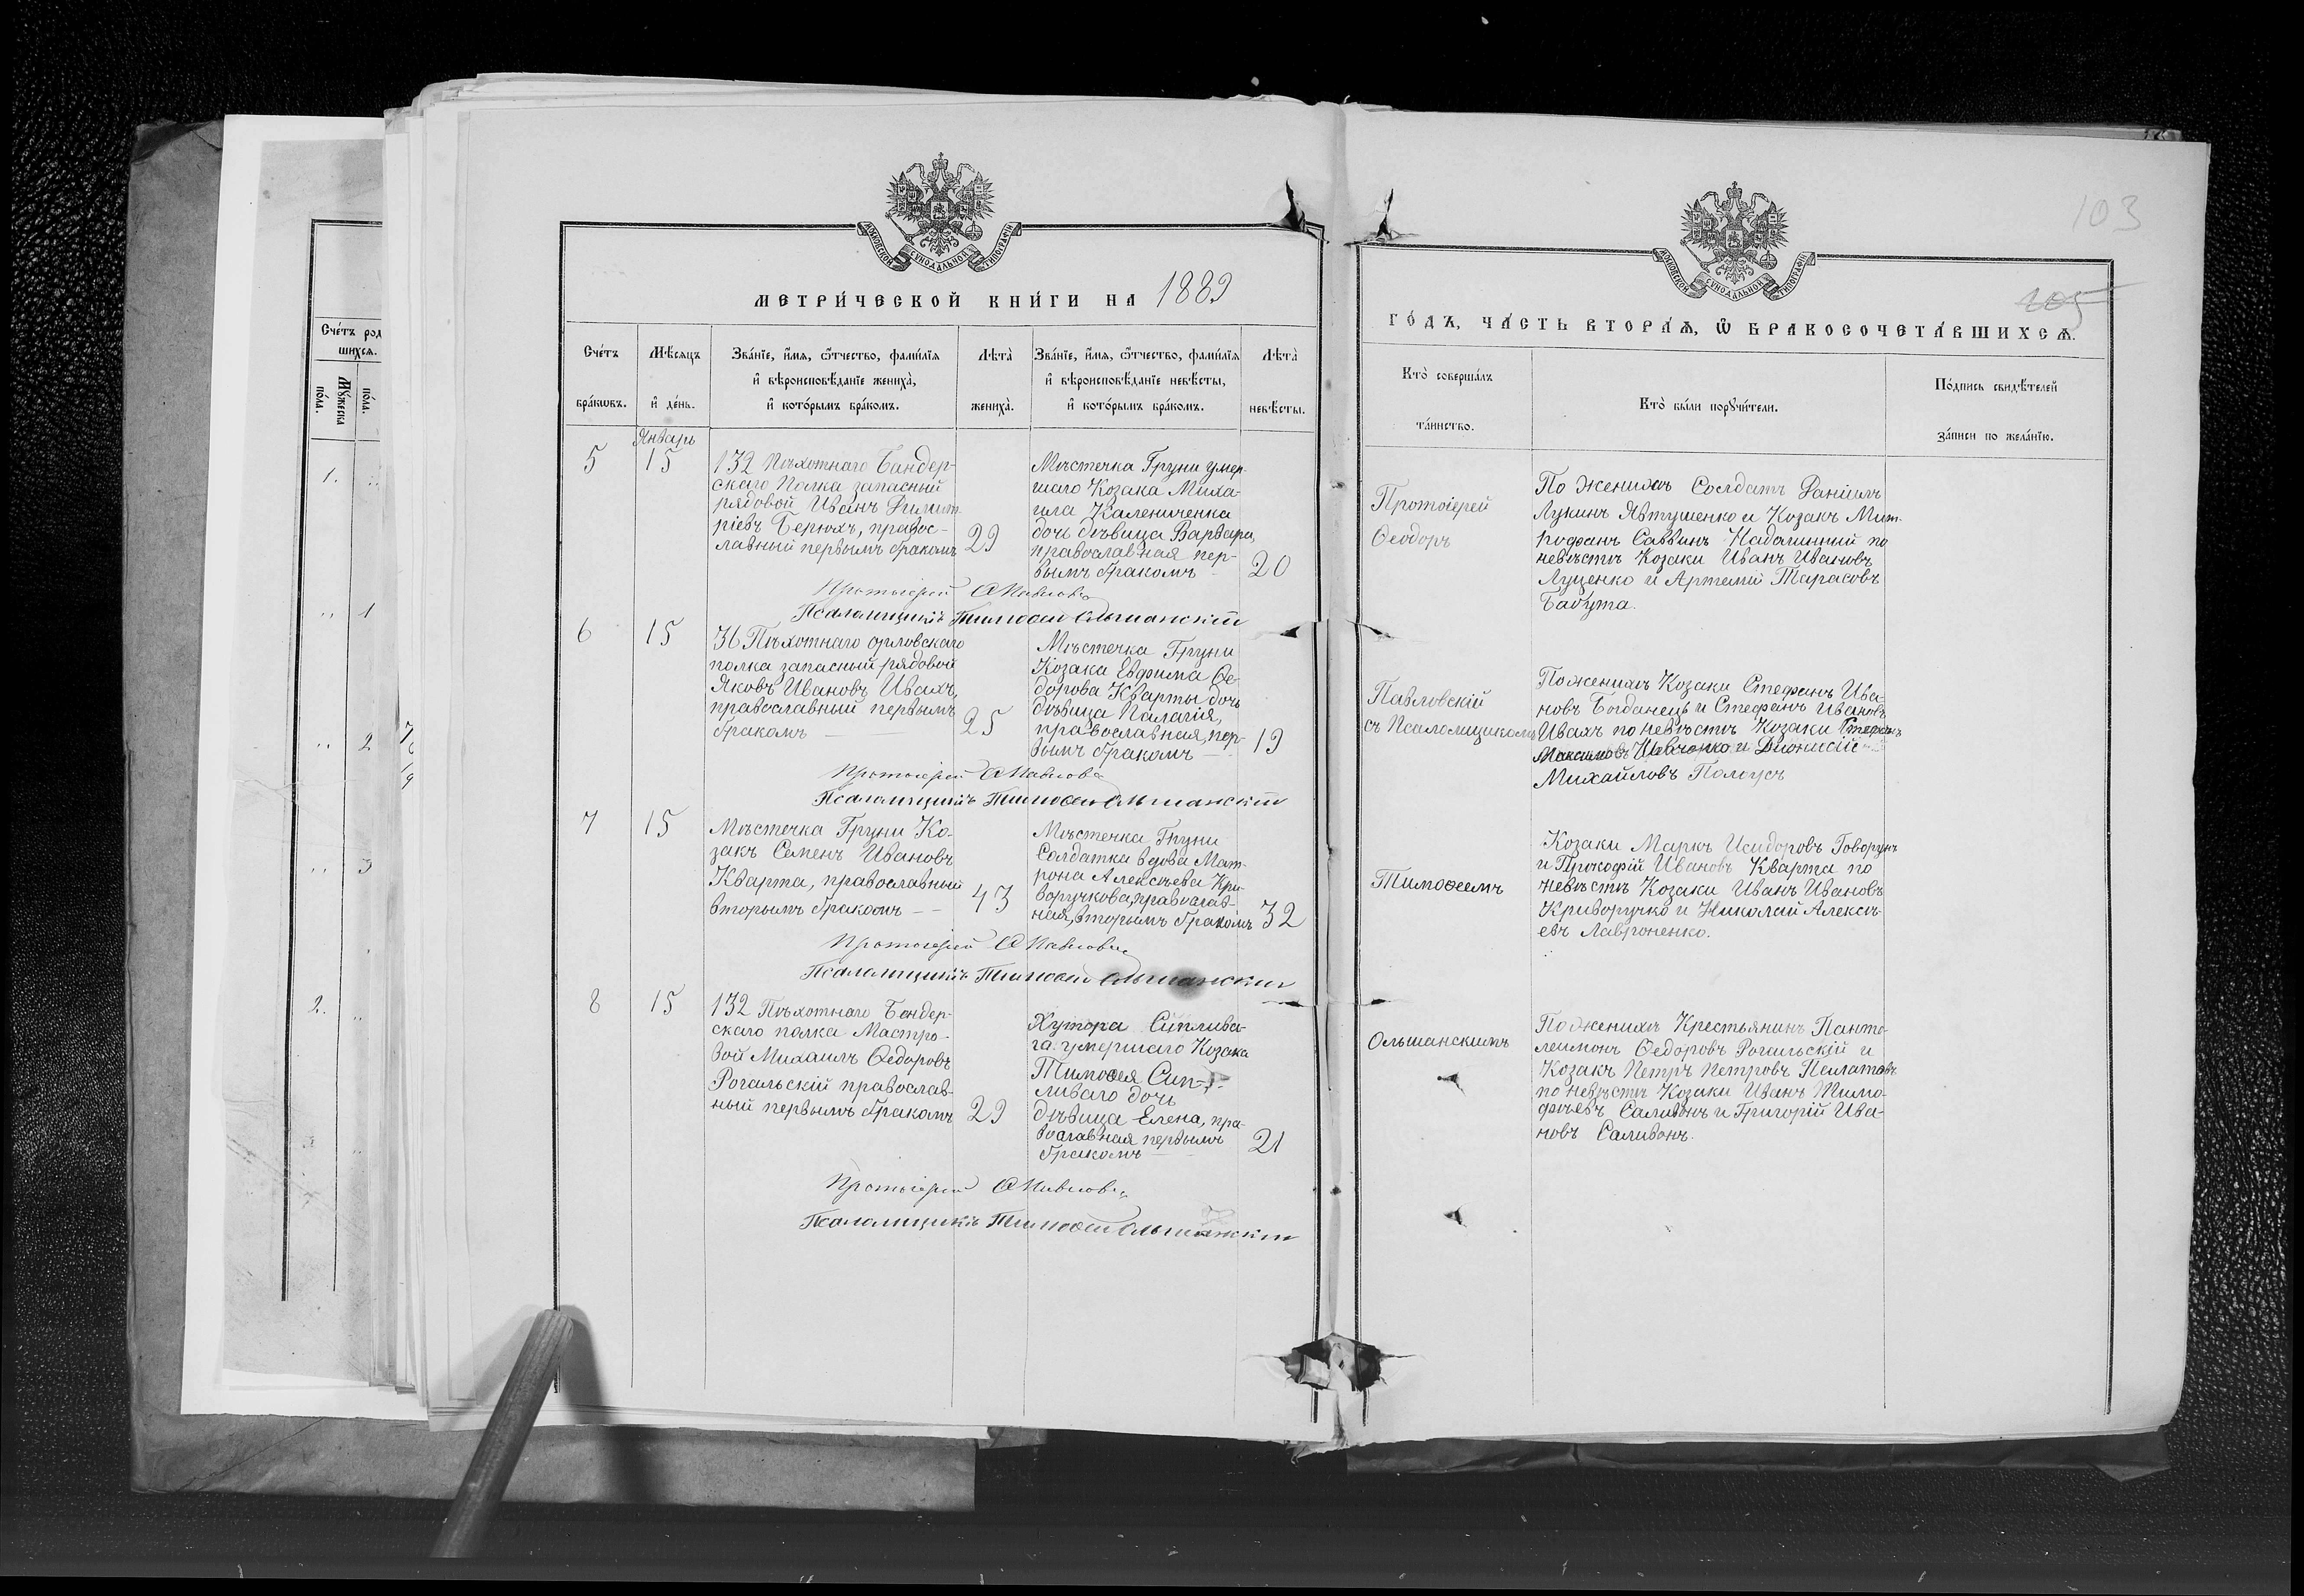 МОСКОВСКОЙ СѴНОДАЛЬНОЙ ТИПОГРАФІИ
МЕТРИ́ЧЕСКОЙ КНИ́ГИ НА 1889
Сче́тъ бра́кѡвъ.
Мѣ́сяцъ и҆ де́нь.
Зва́нїе, и҆́мѧ, ѻ҆́тчество, фами́лїѧ
и҆ вѣроисповѣ́данїе жениха̀,
и҆ кото́рымъ бра́комъ.
Лѣта̀ жениха̀.
Зва́нїе, и҆́мѧ, ѻ҆́тчество, фами́лїѧ
и҆ вѣроисповѣ́данїе невѣ́сты,
и҆ кото́рымъ бра́комъ.
Лѣта̀ невѣ́сты.
Январь
5
15
132 Пѣхотнаго Бендер-
скаго Полка запасный
рядовой Иванъ Димит-
ріевъ Берюхъ, правос-
лавный первымъ бракомъ
29
Мѣстечка Груни умер-
шаго Козака Миха-
ила Калениченка
дочь дѣвица Варвара,
православная пер-
вымъ бракомъ
20
Протоіерей Ѳ Павловскій
Псаломщикъ Тимоѳей Ольшанскій
6
15
36 Пѣхотнаго Орловскаго
полка запасный рядовой
Яковъ Ивановъ Ивахъ,
православный первымъ
бракомъ
25
Мѣстечка Груни
Козака Евфима Ѳе-
дорова Кварты дочь
дѣвица Палагія,
православная, пер-
вымъ бракомъ
19
Протоіерей Ѳ Павловскій
Псаломщикъ Тимоѳей Ольшанскій
7
15
Мѣстечка Груни Ко-
закъ Семенъ Ивановъ
Кварта, православный
вторымъ бракомъ
43
Мѣстечка Груни
Солдатка вдова Мат-
рона Алексѣева Кри-
воручкова, православ-
ная, вторымъ бракомъ
32
Протоіерей Ѳ Павловскій
Псаломщикъ Тимоѳей Ольшанскій
8
15
132 Пѣхотнаго Бендер-
скаго полка Мастро-
вой Михаилъ Ѳедоровъ
Рогальскій православ-
ный первымъ бракомъ
29
Хутора Сиплива-
го умершаго Козака
Тимоѳея Сип-
ливаго дочь
дѣвица Елена, пра-
вославная первымъ
бракомъ
21
Протоіерей Ѳ Павловскій
Псаломщикъ Тимоѳей Ольшанскій
103
105
МОСКОВСКОЙ СѴНОДАЛЬНОЙ ТИПОГРАФІИ
ГО́ДЪ, ЧА́СТЬ ВТОРА́Ѧ, Ѽ БРАКОСОЧЕТА́ВШИХСѦ.
Кто̀ соверша́лъ
та́инство.
Кто̀ бы́ли порꙋчи́тели.
По́дпись свидѣ́телей
за́писи по жела́нїю.
Протоіерей
Ѳеодоръ
Павловскій
съ Псаломщикомъ
Тимоѳеемъ
Ольшанскимъ
По женихѣ Солдатъ Даніилъ
Лукинъ Явтушенко и Козакъ Мит-
рофанъ Саввинъ Надашиний по
невѣстѣ Козаки Иванъ Ивановъ
Луценко и Артемий Тарасовъ
Бабута.
По женихѣ Козаки Стефанъ Ива-
новъ Богданецъ и Стефанъ Ивановъ
Ивахъ по невѣстѣ Козаки Стефанъ
Максимовъ Шевченко и Дионисій
Михайловъ Полоусъ
Козаки Маркъ Исидоровъ Говорунъ
и Прокофій Ивановъ Кварта по
невѣстѣ Козаки Иванъ Ивановъ
Криворучко и Николай Алексѣ-
евъ Лавроненко.
По женихѣ Крестьянинъ Панте-
леимонъ Ѳедоровъ Рогальскій и
Козакъ Петръ Петровъ Пилатовъ
по невѣстѣ Козаки Иванъ Тимо-
фѣевъ Саливонъ и Григорій Ива-
новъ Саливонъ.
Сче́тъ род
шихсѧ.
Мꙋ́жеска
по́ла.
по́ла.
1.
1
2
3
2.